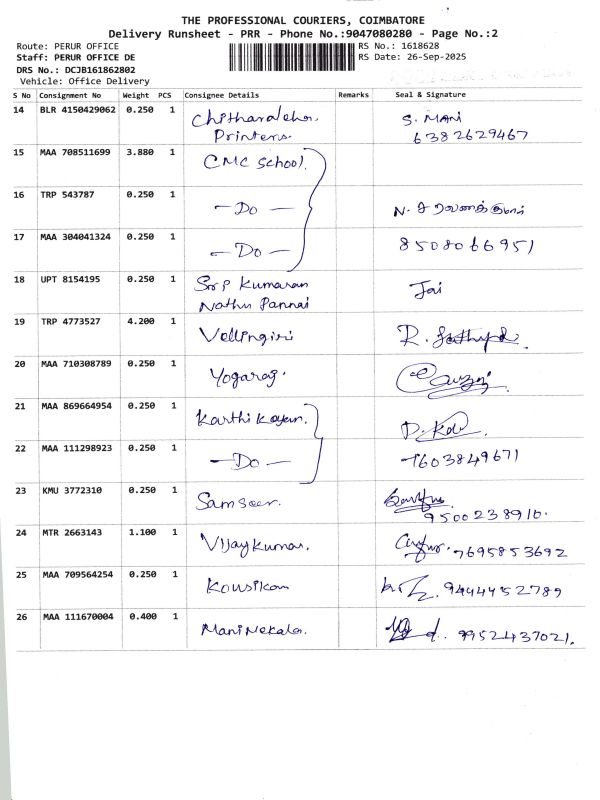 THE PROFESSIONAL COURIERS, COIMBATORE
Delivery Runsheet - PRR - Phone No.:9047080280 - Page No.:2
Route: PERUR OFFICE
RS No.: 1618628
Staff: PERUR OFFICE DE
RS Date: 26-Sep-2025
DRS No.: DCJB161862802
Vehicle: Office Delivery
S No Consignment No Weight PCS Consignee Details Remarks Seal & Signature
14 BLR 4150429062 0.250 1 S. Mani
Printers. 6382629467
15 MAA 708511699 3.880 1 CMC School.
16 TRP 543787 0.250 1 - Do - N.
17 MAA 304041324 0.250 1 - Do - 8508066951
18 UPT 8154195 0.250 1 Sri Kumaran Jai
Nathu Pannai
19 TRP 4773527 4.200 1 Vellingiri R.
20 MAA 710308789 0.250 1 Yogaraj.
21 MAA 869664954 0.250 1 Karthikeyan.
22 MAA 111298923 0.250 1 - Do - 7603849671
23 KMU 3772310 0.250 1 Samseer.
9500238910.
24 MTR 2663143 1.100 1 Vijaykumar. 7695853692
25 MAA 709564254 0.250 1 Kousikan 9444452789
26 MAA 111670004 0.400 1 Manimekala. 9952437021.